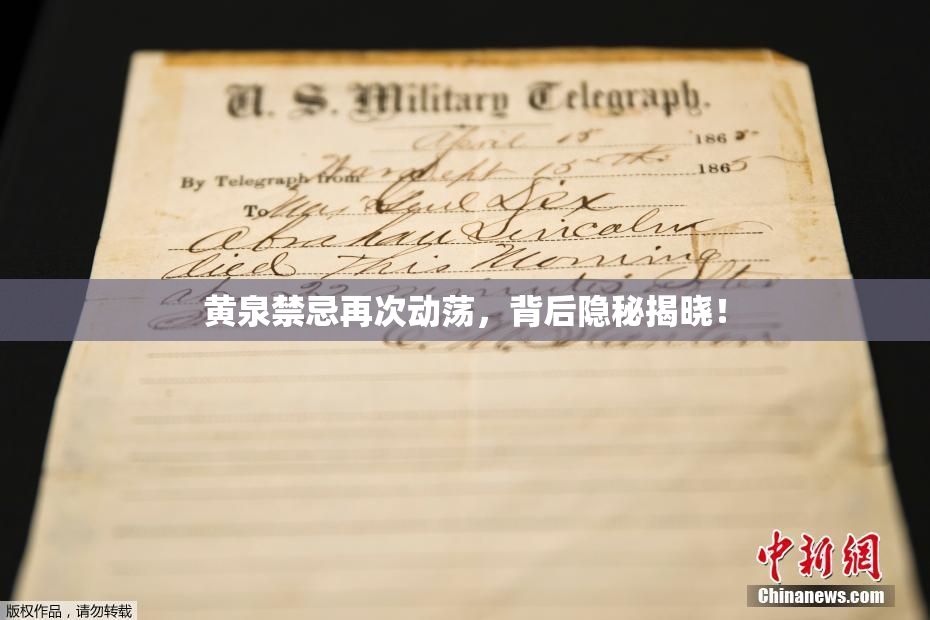 U. S. Military Telegraph.
April 15 1865
By Telegraph from War Dept 15th 1865
To Maj Genl Dix
Abraham Lincoln
died This Morning
at 22 minutes after
黄泉禁忌再次动荡，背后隐秘揭晓！
E. M. Stanton
中新网
Chinanews.com
版权作品，请勿转载